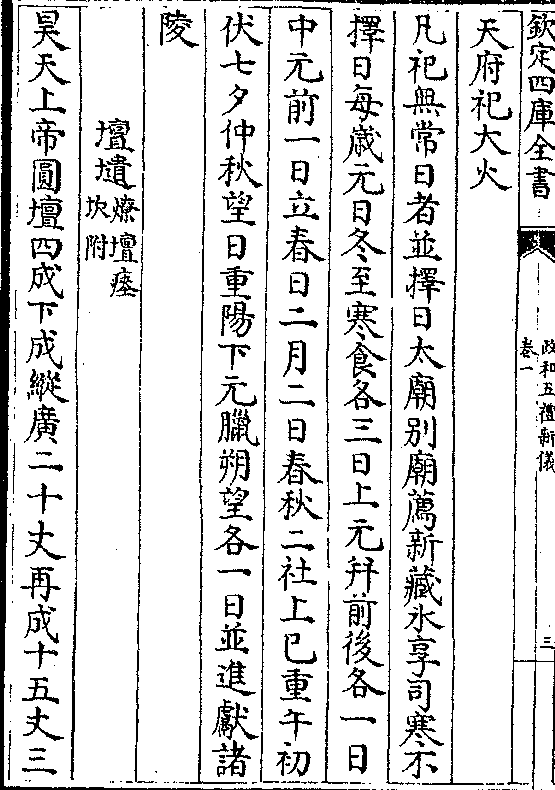 欽定四庫全書
政和五禮新儀
卷一
三
天府祀大火
凡祀無常日者並擇日太廟別廟薦新藏氷享司寒不
擇日每歲元日冬至寒食各三日上元并前後各一日
中元前一日立春日二月二日春秋二社上巳重午初
伏七夕仲秋望日重陽下元臘朔望各一日並進獻諸
陵
壇壝燎壇瘞坎附
昊天上帝圓壇四成下成縱廣二十丈再成十五丈三